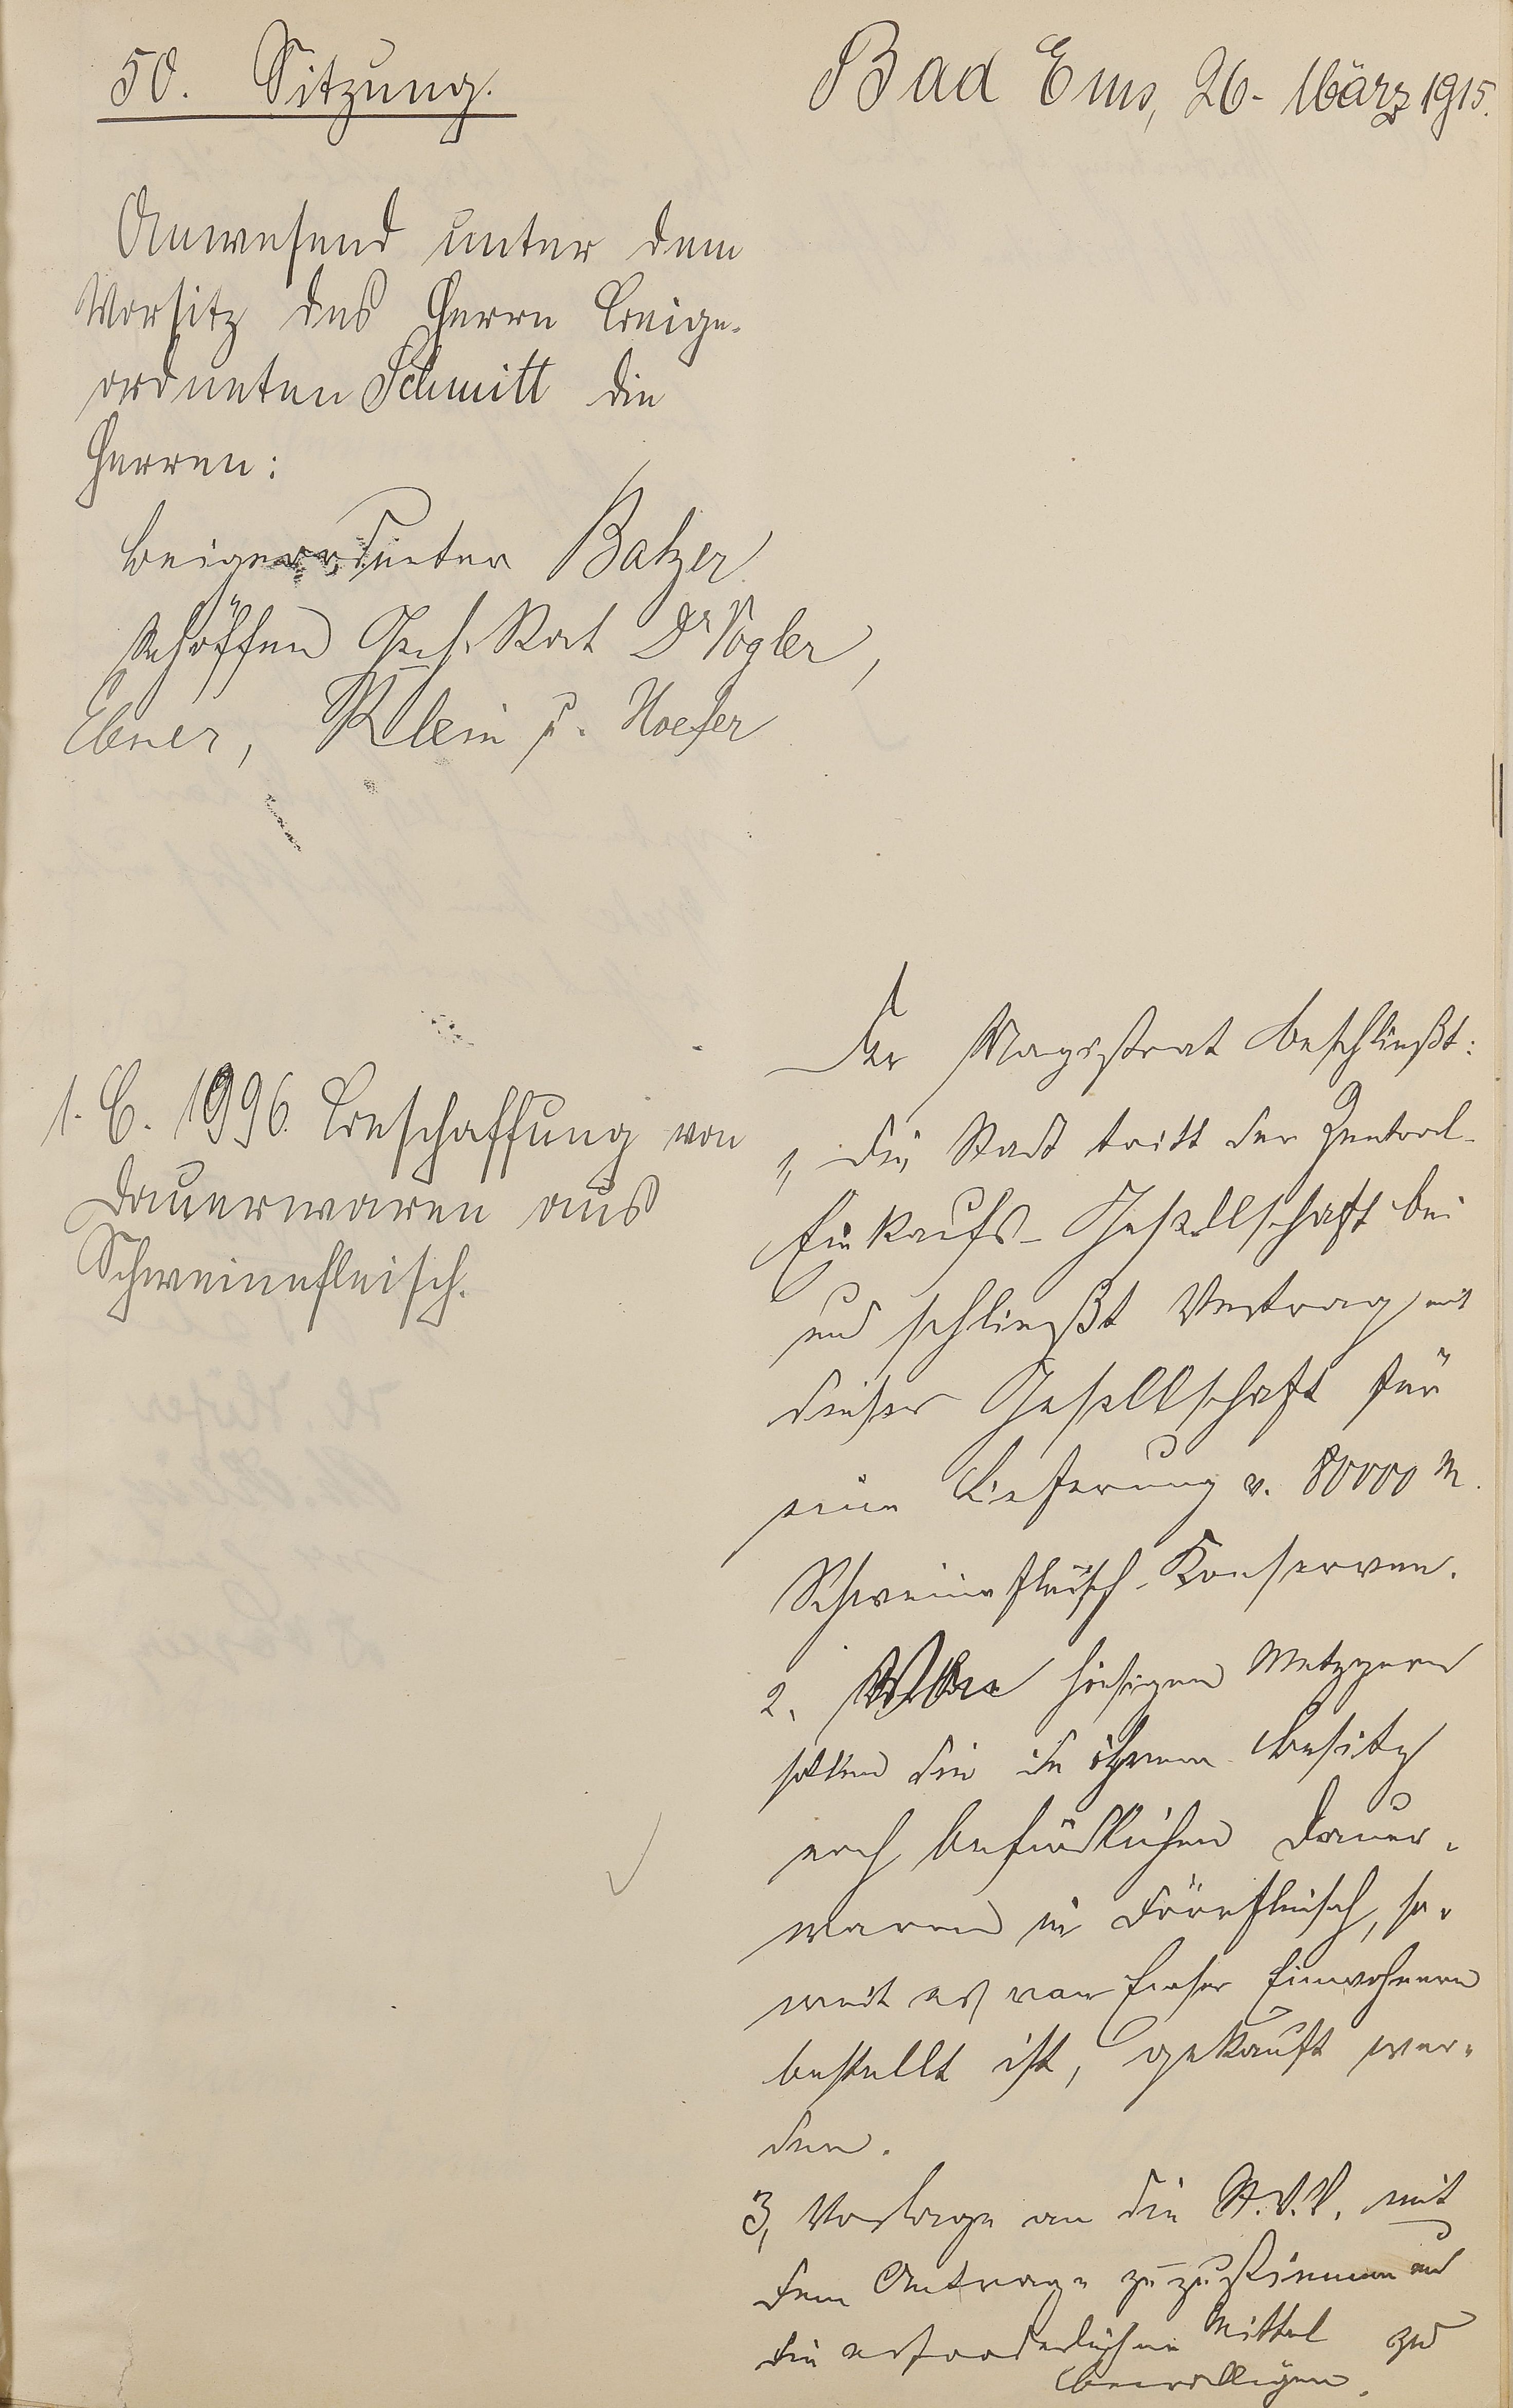 50. Sitzung.
Bad Ems, 26. März 1915.
Anwesend unter dem
Vorsitz des Herrn Beige-
ordneten Schmitt die
Herren:
Beigeordneter Balzer
Schöffen Geh. Rat Dr Vogler,
Ebner, Klein u. Hoefer
1. C. 1996. Beschaffung von
Dauerwaren aus
Schweinefleisch.
Der Magistrat beschließt:
1, Die Stadt tritt der Zentral-
Einkaufs-Gesellschaft bei
und schließt Vertrag mit
dieser Gesellschaft für
eine Lieferung v. 80000 M.
Schweinefleisch-Konserven.
2. Von hiesigen Metzgern
sollen die in ihrem Besitz
noch befindlichen Dauer-
waren in Dörrfleisch, so-
weit es von Emser Einwohnern
bestellt ist, gekauft wer-
den.
3, Vorlage an die St.V.V. mit
dem Antrage zuzustimmen und
die erforderlichen Mittel zu
bewilligen.